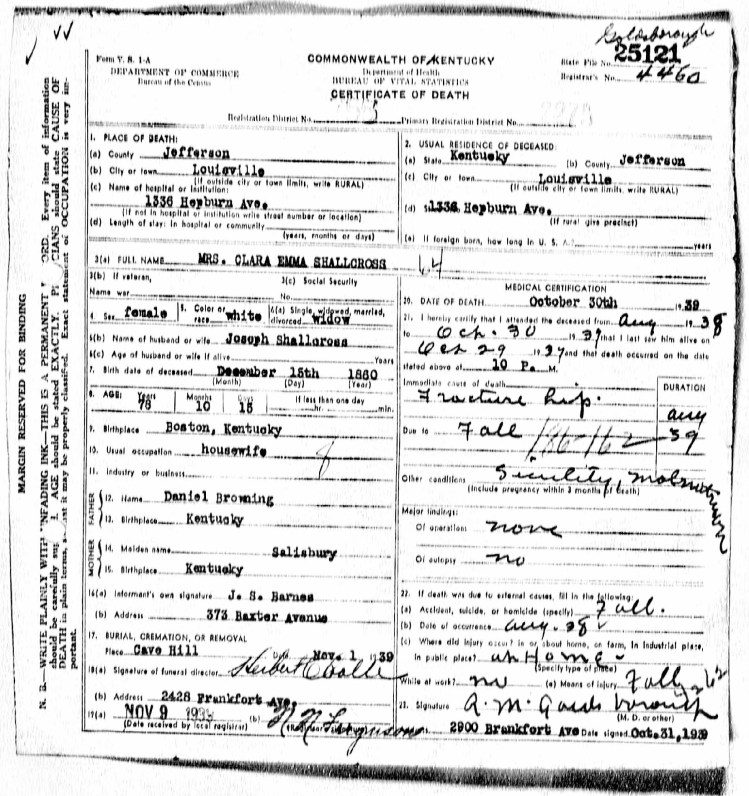 Goldsborough
25121
State File No.
Registrar's No. 4460
Form V. S. 1-A
DEPARTMENT OF COMMERCE
Bureau of the Census
COMMONWEALTH OF KENTUCKY
Department of Health
BUREAU OF VITAL STATISTICS
CERTIFICATE OF DEATH
Registration District No.
Primary Registration District No.
MARGIN RESERVED FOR BINDING
N. B.—WRITE PLAINLY WITH UNFADING INK—THIS IS A PERMANENT ORD. Every item of information
should be carefully sup AGE should be stated EXACTLY. P CIANS should state CAUSE OF
DEATH in plain terms, s at it may be properly classified. Exact statement of OCCUPATION is very im-
portant.
1. PLACE OF DEATH:
(a) County Jefferson
(b) City or town Louisville
(If outside city or town limits, write RURAL)
(c) Name of hospital or institution
1336 Hepburn Ave.
(If not in hospital or institution write street number or location)
(d) Length of stay: In hospital or community
(years, months or days)
2. USUAL RESIDENCE OF DECEASED:
(a) State Kentucky (b) County Jefferson
(c) City or town Louisville
(If outside city or town limits, write RURAL)
(d) 1336 Hepburn Ave.
(If rural give precinct)
(e) If foreign born, how long in U. S. A.? years
3(a) FULL NAME MRS. CLARA EMMA SHALLCROSS
3(b) If veteran,
Name war
3(c) Social Security
No.
4. Sex female
5. Color or
race white
6(a) Single, widowed, married,
divorced widow
6(b) Name of husband or wife Joseph Shallcross
6(c) Age of husband or wife if alive Years
7. Birth date of deceased December 15th 1860
(Month) (Day) (Year)
8. AGE: Years 78 Months 10 Days 15 If less than one day
hr. min.
9. Birthplace Boston, Kentucky
10. Usual occupation housewife
11. Industry or business
FATHER
12. Name Daniel Browning
13. Birthplace Kentucky
MOTHER
14. Maiden name Salisbury
15. Birthplace Kentucky
16(a) Informant's own signature J. S. Barnes
(b) Address 373 Baxter Avenue
17. BURIAL, CREMATION, OR REMOVAL
Place Cave Hill Date Nov. 1 1939
18(a) Signature of funeral director
(b) Address 2428 Frankfort Ave
19(a) NOV 9 1939 (b)
(Date received by local registrar)
MEDICAL CERTIFICATION
20. DATE OF DEATH October 30th 1939
21. I hereby certify that I attended the deceased from Aug 1938
to Oct. 30 1939 that I last saw him alive on
Oct 29 1939 and that death occurred on the date
stated above at 10 P. M.
DURATION
Immediate cause of death
Fracture hip.
Aug
39
Due to Fall 186-162
Other conditions
(Include pregnancy within 3 months of death)
Major findings:
Of operations none
Of autopsy no
22. If death was due to external causes, fill in the following:
(a) Accident, suicide, or homicide (specify) Fall.
(b) Date of occurrence Aug. 38
(c) Where did injury occur? In or about home, on farm, in industrial place,
in public place? at Home
(Specify type of place)
While at work? no (e) Means of injury Fall
23. Signature A. M. Goldsborough
(M. D. or other)
2900 Brankfort Ave Date signed Oct. 31, 1939